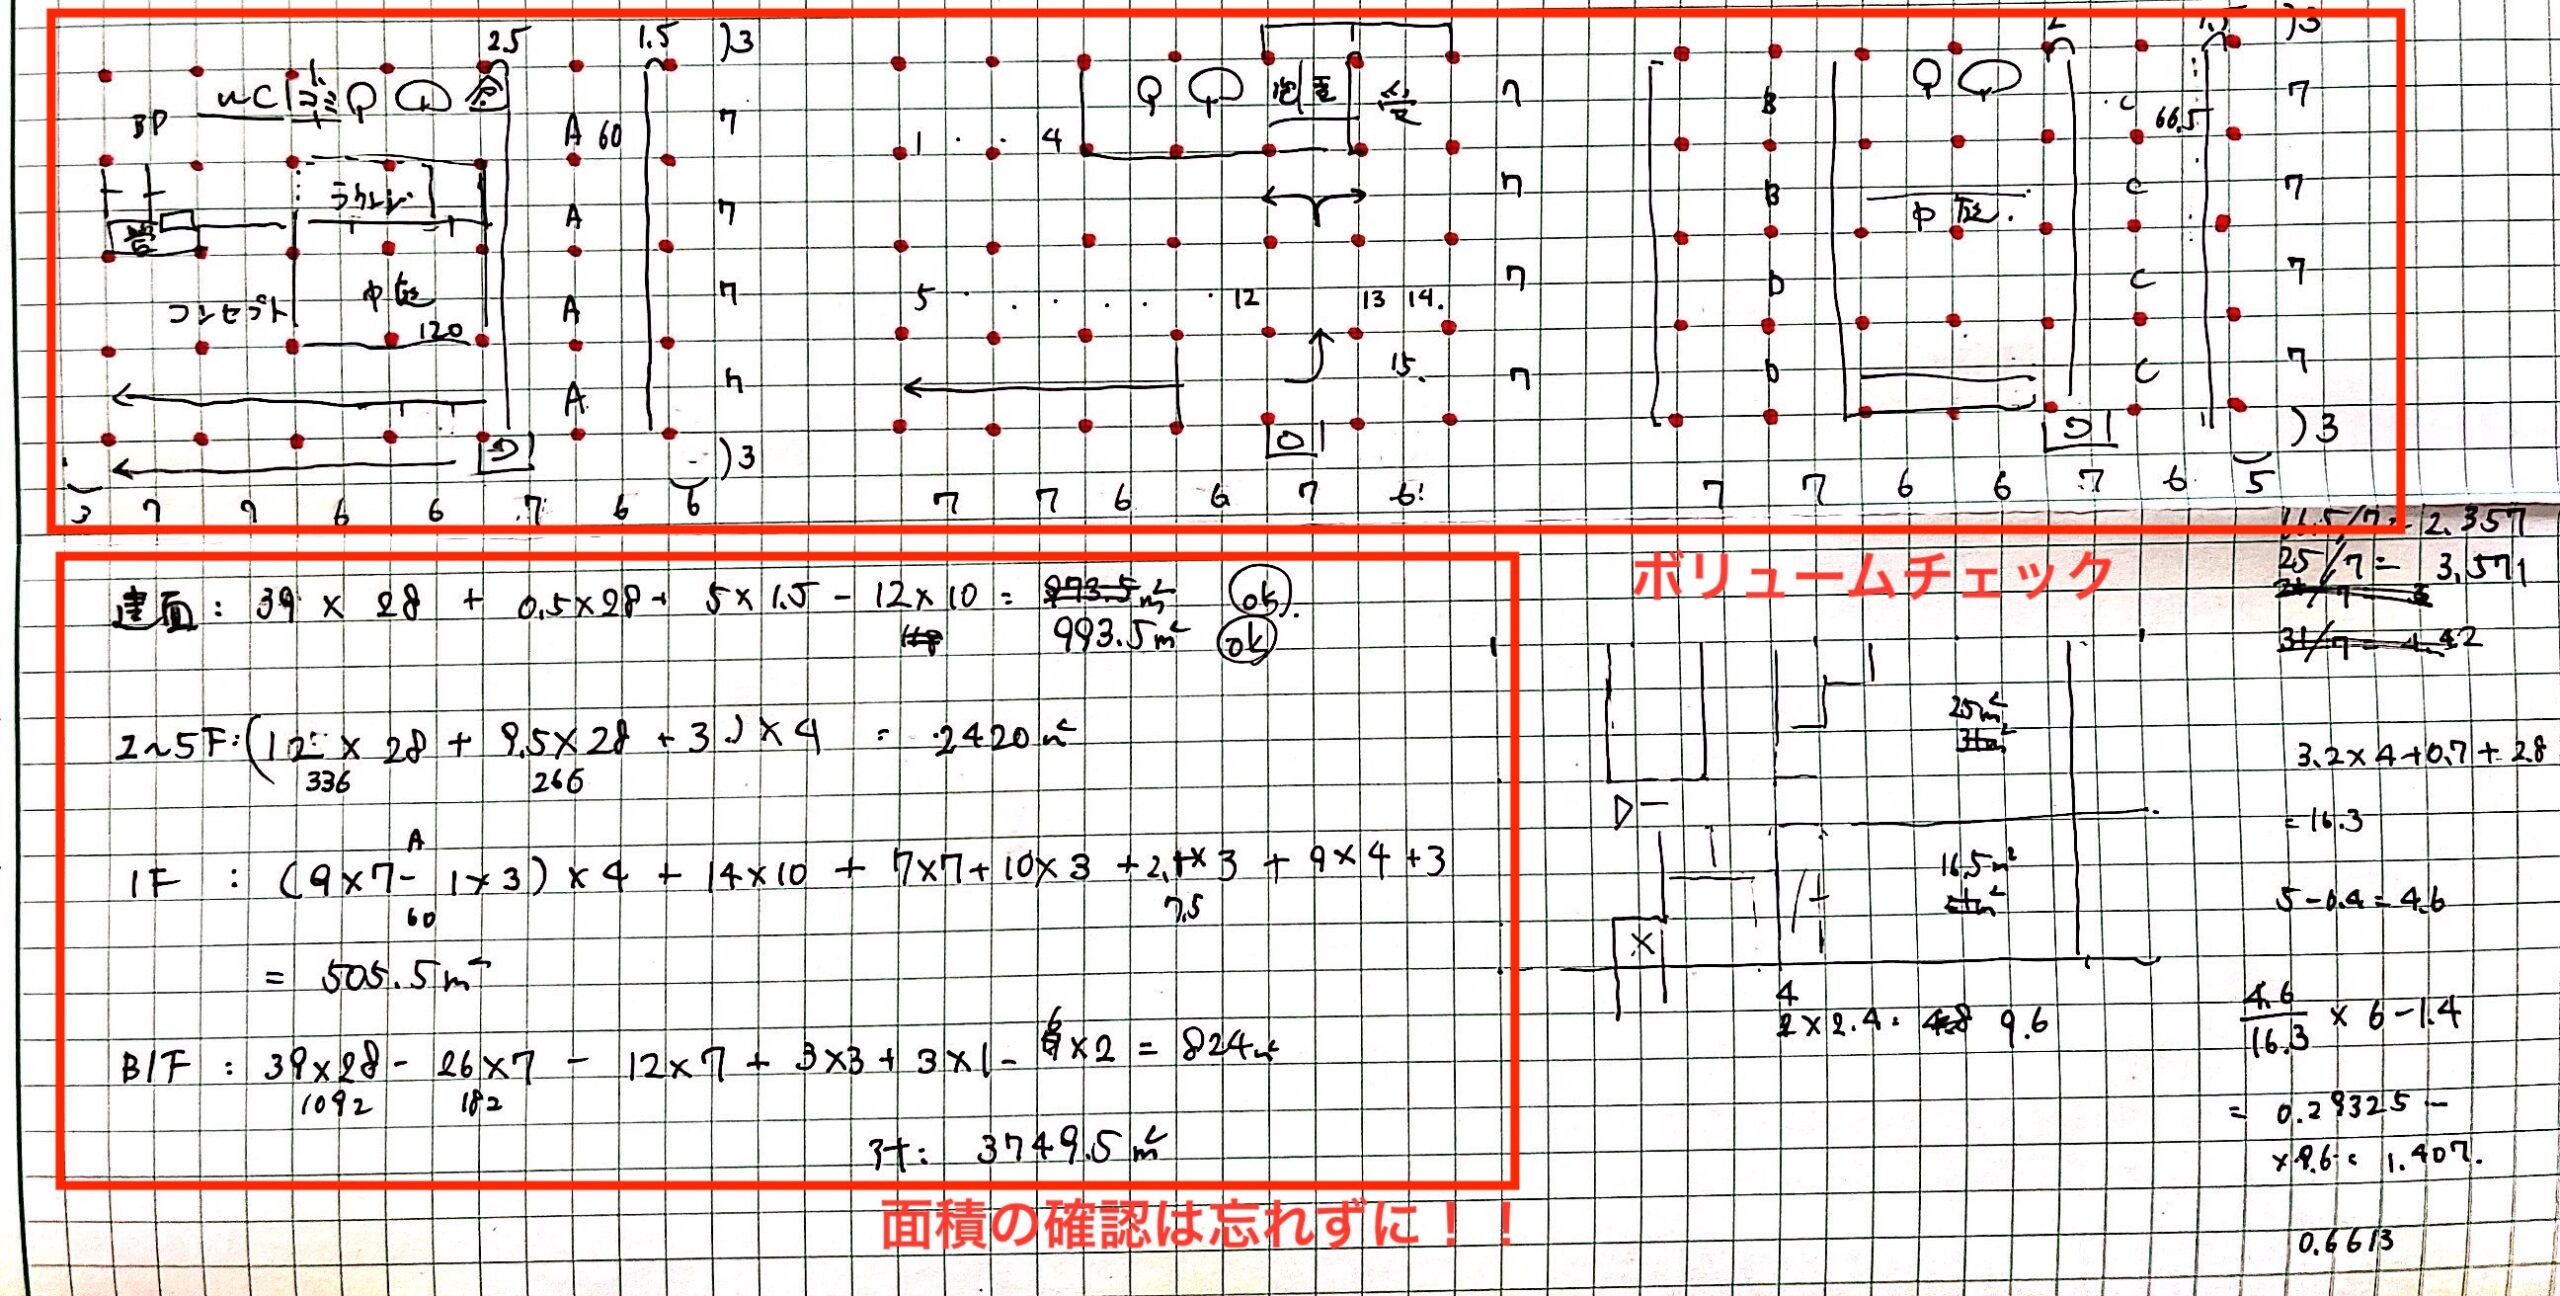 2.5 1.5 )3
1 )3
2 1.5 )3
BP WC
A 60 7
7
B C 66.5 7
1 4
ラウンジ A 7
7
B 中庭. C 7
コンセプト 中庭 A 7
5 12 13 14. 7
D C 7
120
A 7
15. 7
D C 7
)3
)3
3 7 9 6 6 7 6 6
7 7 6 6 7 6
7 7 6 6 7 6 5
ボリュームチェック
面積の確認は忘れずに！！
建面 : 39 × 28 + 0.5×28 + 5×1.5 - 12×10 = 973.5㎡ ok
118 993.5㎡ ok
2~5F:(12 × 28 + 9.5×28 + 3)×4 = 2420㎡
336 266
A
1F : (9×7-1×3)×4 + 14×10 + 7×7+10×3 +2.5×3 + 9×4+3
60 7.5
= 505.5㎡
B1F : 39×28 - 26×7 - 12×7 + 3×3 + 3×1 - 6×2 = 824㎡
1092 182
計: 3749.5㎡
16.5/7 = 2.357
25/7 = 3.571
31/7 = 4.42
25㎡
31㎡
16.5㎡
4
2×2.4 = 4.8 9.6
3.2×4+0.7+2.8
= 16.3
5-0.4=4.6
4.6
16.3 × 6-1.4
= 0.29325
×9.6 = 1.407.
0.6613